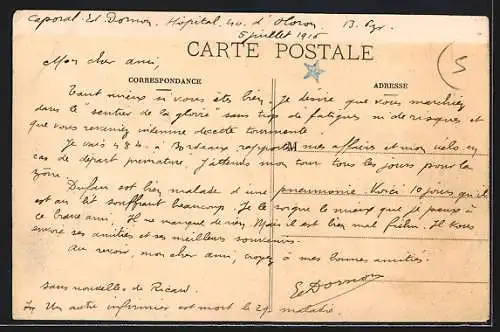 Caporal Et Dornon, Hôpital 40. d' Oloron B. Pyr.
5 juillet 1916
CARTE POSTALE
5
Mon cher ami,
CORRESPONDANCE
ADRESSE
Tant mieux si vous êtes bien. Je désire que vous marchiez
dans le "sentier de la gloire" sans trop de fatigues ni de risques et
que vous reveniez indemne de cette tourmente
Je vais 48 h. à Bordeaux rapporter mes affaires et mon vélo en
M
cas de départ prématuré. J'attends mon tour tous les jours pour la
zône.
Dufau est bien malade d'une pneumonie. Voici 10 jours qu'il
est au lit souffrant beaucoup. Je le soigne le mieux que je peux à
ce brave ami. Il ne manque de rien. Mais il est bien mal fichu. Il vous
envoie ses amitiés et ses meilleurs souvenirs.
Au revoir, mon cher ami, croyez à mes bonnes amitiés.
Et Dornon
Sans nouvelles de Ricard
Un autre infirmier est mort le 29 maladie.